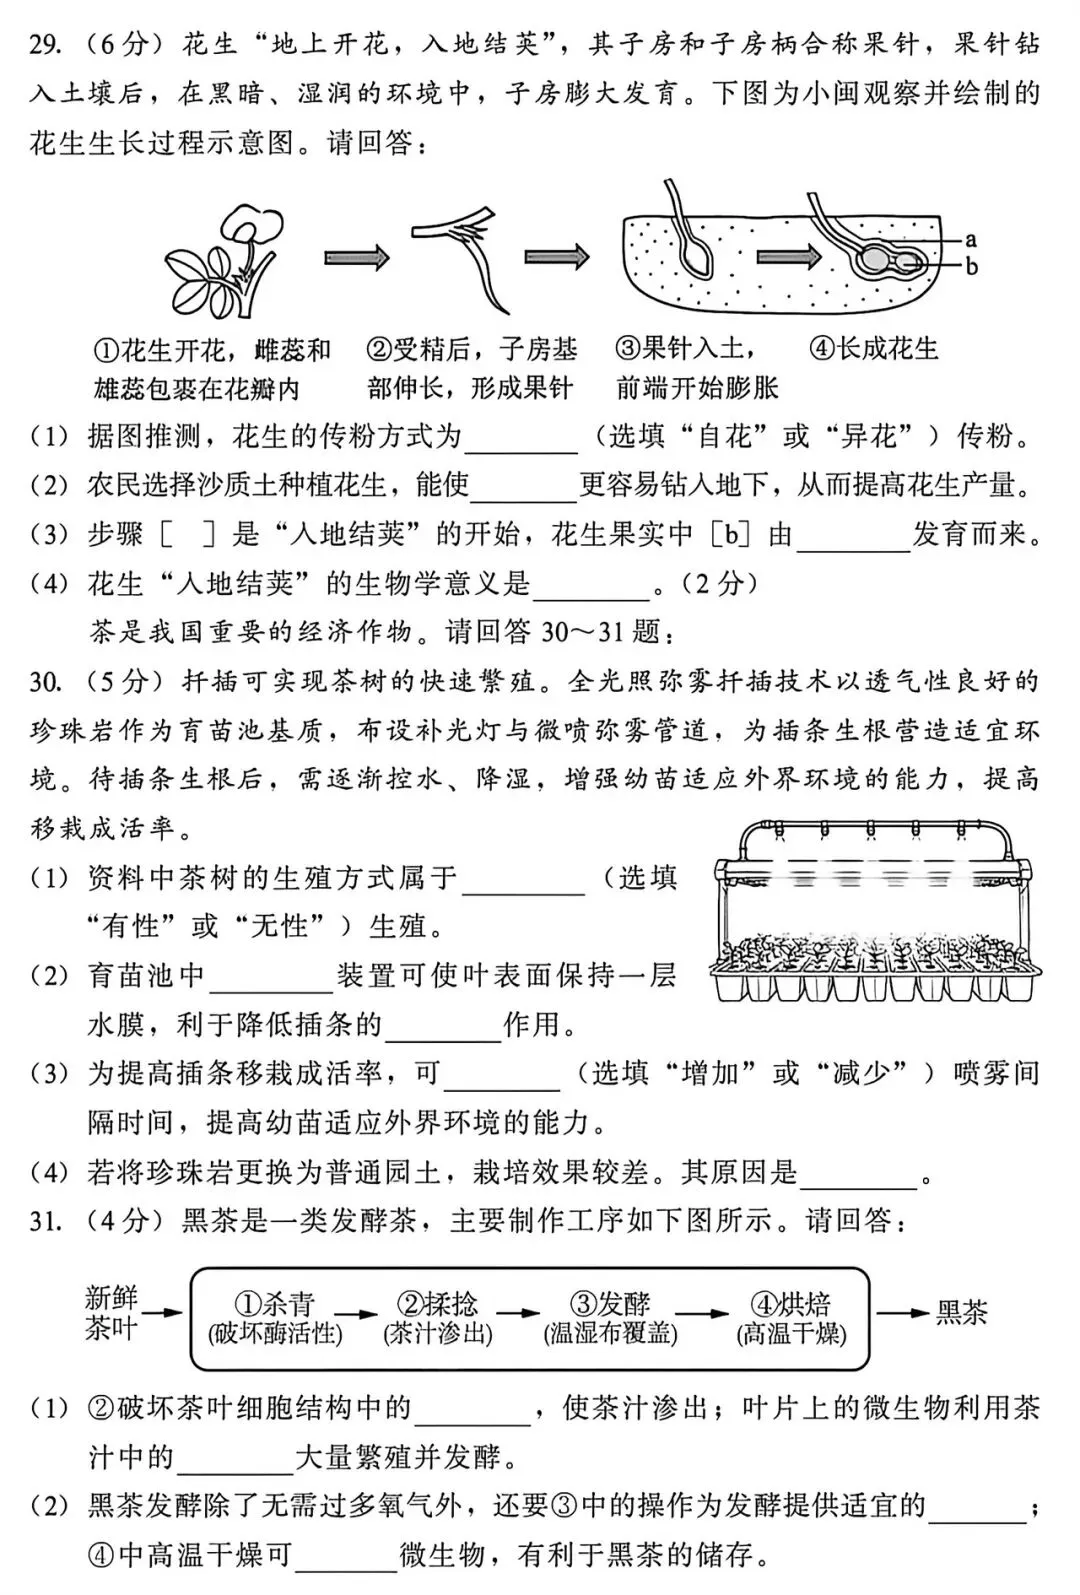 29. （6分）花生“地上开花，入地结荚”，其子房和子房柄合称果针，果针钻
入土壤后，在黑暗、湿润的环境中，子房膨大发育。下图为小闽观察并绘制的
花生生长过程示意图。请回答：
a
b
①花生开花，雌蕊和
雄蕊包裹在花瓣内
②受精后，子房基
部伸长，形成果针
③果针入土，
前端开始膨胀
④长成花生
（1）据图推测，花生的传粉方式为________（选填“自花”或“异花”）传粉。
（2）农民选择沙质土种植花生，能使________更容易钻入地下，从而提高花生产量。
（3）步骤［　］是“入地结荚”的开始，花生果实中［b］由________发育而来。
（4）花生“入地结荚”的生物学意义是________。（2分）
茶是我国重要的经济作物。请回答30～31题：
30. （5分）扦插可实现茶树的快速繁殖。全光照弥雾扦插技术以透气性良好的
珍珠岩作为育苗池基质，布设补光灯与微喷弥雾管道，为插条生根营造适宜环
境。待插条生根后，需逐渐控水、降湿，增强幼苗适应外界环境的能力，提高
移栽成活率。
（1）资料中茶树的生殖方式属于________（选填
“有性”或“无性”）生殖。
（2）育苗池中________装置可使叶表面保持一层
水膜，利于降低插条的________作用。
（3）为提高插条移栽成活率，可________（选填“增加”或“减少”）喷雾间
隔时间，提高幼苗适应外界环境的能力。
（4）若将珍珠岩更换为普通园土，栽培效果较差。其原因是________。
31. （4分）黑茶是一类发酵茶，主要制作工序如下图所示。请回答：
新鲜
茶叶
①杀青
(破坏酶活性)
②揉捻
(茶汁渗出)
③发酵
(温湿布覆盖)
④烘焙
(高温干燥)
黑茶
（1）②破坏茶叶细胞结构中的________，使茶汁渗出；叶片上的微生物利用茶
汁中的________大量繁殖并发酵。
（2）黑茶发酵除了无需过多氧气外，还要③中的操作为发酵提供适宜的________；
④中高温干燥可________微生物，有利于黑茶的储存。